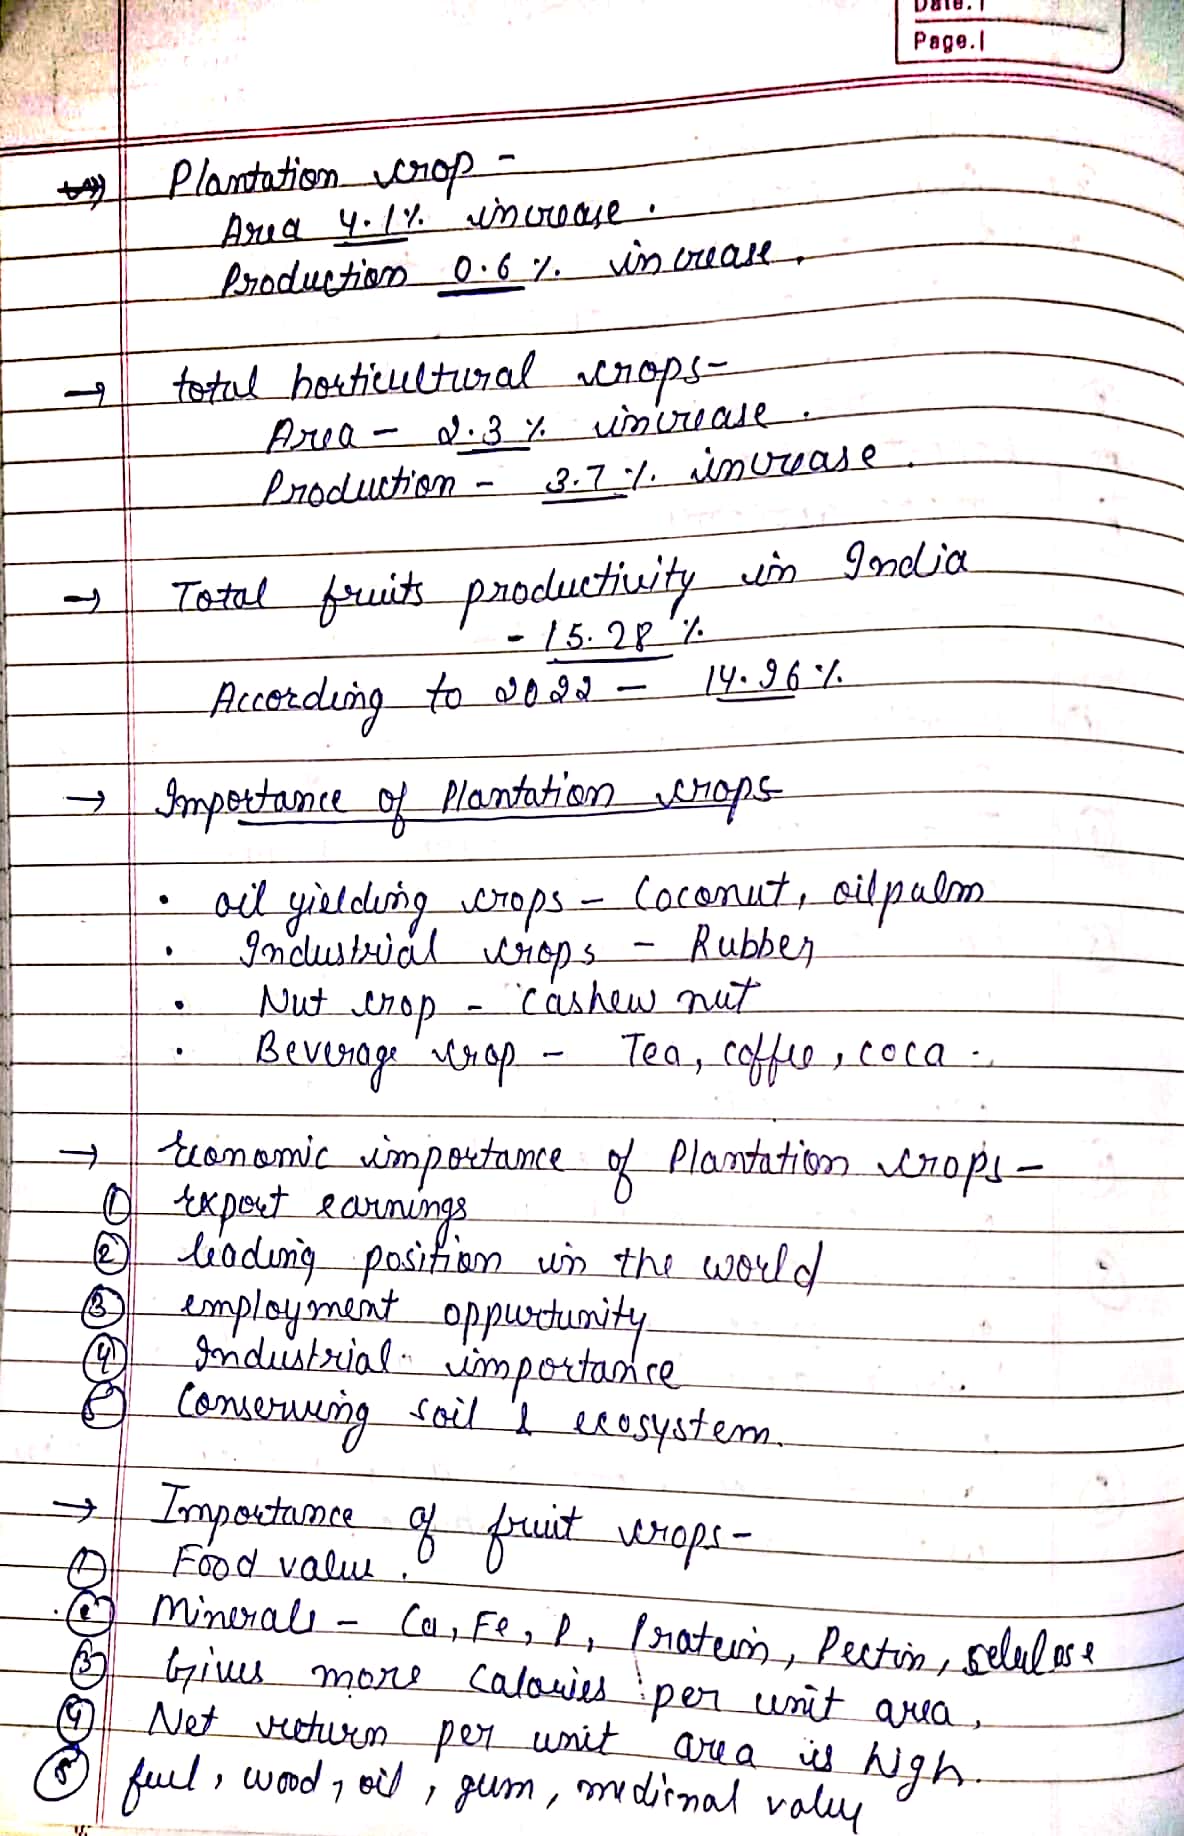 Date.
Page.
Plantation crop -
Area 4.1% increase.
Production 0.6% increase.
→ total horticultural crops-
Area - 2.3% increase.
Production - 3.7% increase.
→ Total fruits productivity in India
- 15.28%
According to 2022 - 14.96%
→ Importance of Plantation crops
• oil yielding crops - Coconut, oilpalm
• Industrial crops - Rubber
• Nut crop - cashew nut
• Beverage crop - Tea, coffee, coca.
→ Economic importance of Plantation crops-
① Export earnings
② leading position in the world
③ employment oppurtunity
④ Industrial importance
⑤ Conserving soil & ecosystem.
→ Importance of fruit crops-
① Food value.
② Minerals - Ca, Fe, P, Protein, Pectin, selulose
③ Gives more Calories per unit area,
④ Net return per unit area is high.
⑤ fuel, wood, oil, gum, medicinal value